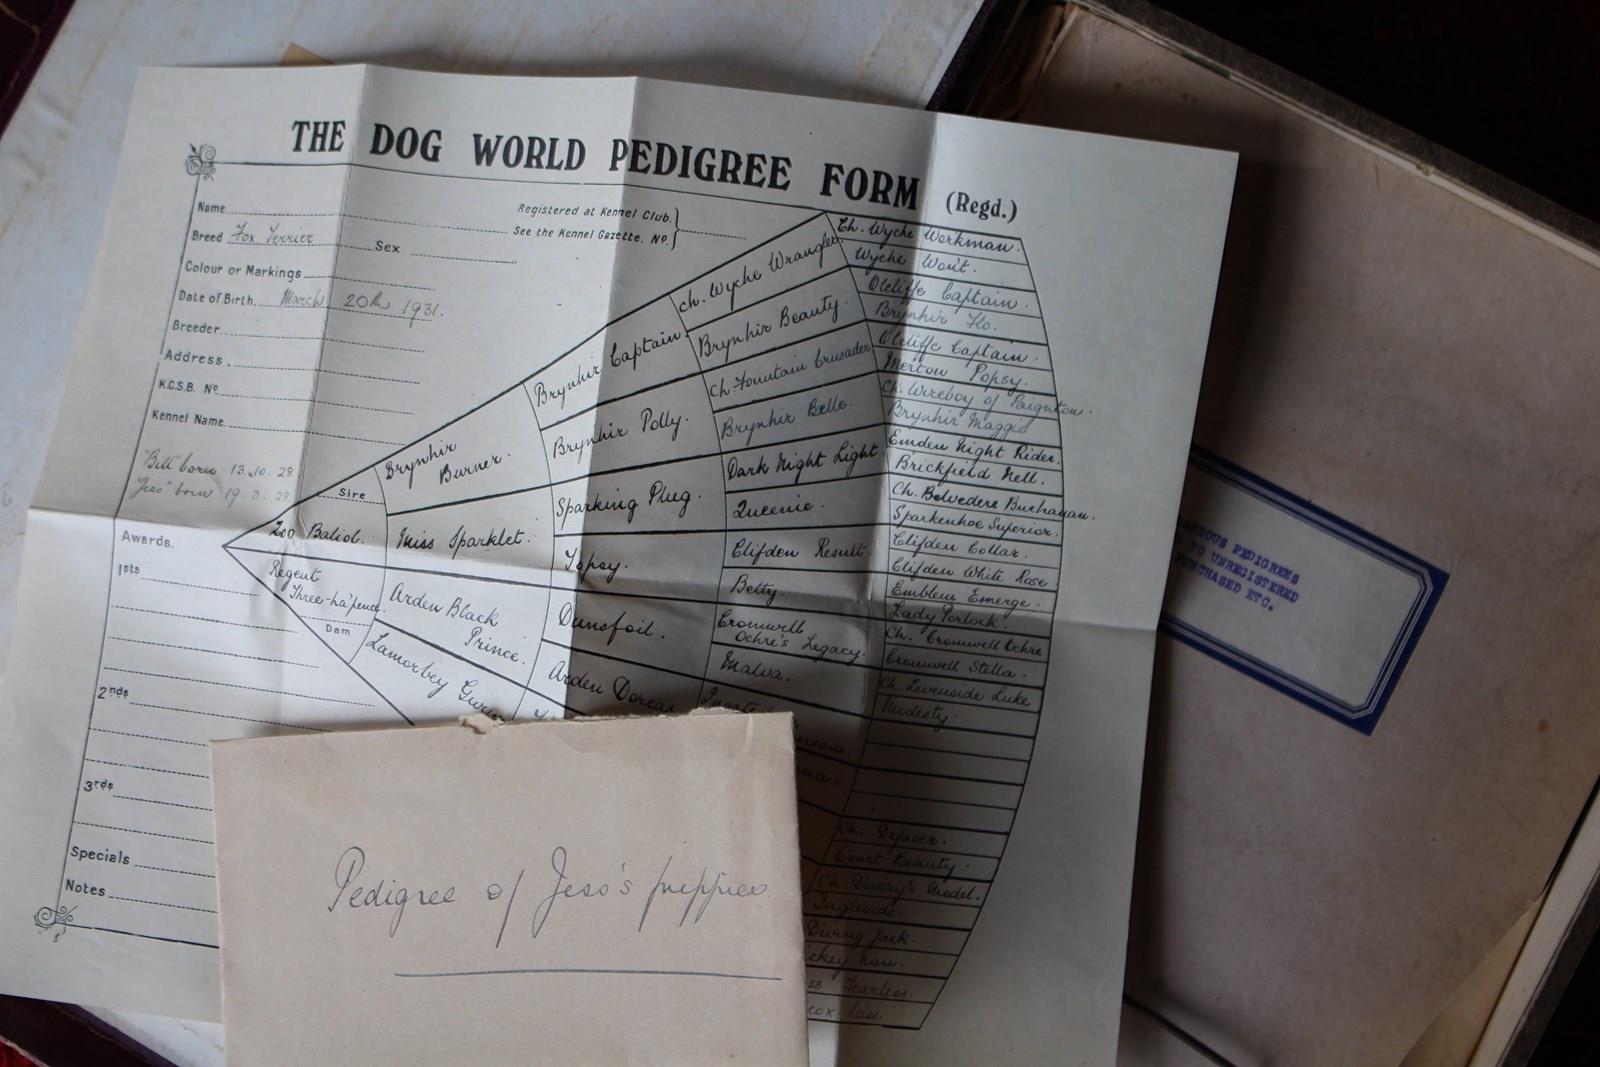 THE DOG WORLD PEDIGREE FORM (Regd.)
Name
Registered at Kennel Club.
See the Kennel Gazette. No.
Breed Fox Terrier
Sex
Colour or Markings
Date of Birth. March 20th 1931.
Breeder.
Address.
K.C.S.B. No.
Kennel Name
"Bill" born 13.10.28
"Jess" born 19.3.28
Sire
Zoo Baliol.
Regent
Three-ha'pence.
Dam
Brynhir
Burner.
Miss Sparklet.
Arden Black
Prince.
Lamorbey
Brynhir Captain.
Brynhir Polly.
Sparking Plug.
Topsy.
Dunsfoil.
Arden Dorcas
Ch. Wyche Wrangler
Brynhir Beauty.
Ch. Fountain Crusader
Brynhir Belle.
Dark Night Light
Queenie.
Clifden Result.
Betty
Cromwell
Ochre's Legacy.
Malva.
Ch. Wyche Workman.
Wyche Won't.
Olcliffe Captain.
Brynhir Flo.
Olcliffe Captain.
Merton Popsy.
Ch. Wireboy of Paignton.
Brynhir Maggie
Emden Night Rider.
Brickfield Nell.
Ch. Belvedere Buchanan.
Sparkenhoe Superior.
Clifden Collar.
Clifden White Rose
Emblem Emerge.
Lady Porlock.
Ch. Cromwell Ochre
Cromwell Stella.
Ch. Levenside Luke
Modesty.
Ch. Defacer.
Court Beauty.
Ch. D'Orsay's Model.
Ingleside.
Diving Jack.
Fearless.
Lass.
Awards.
1sts
2nds
3rds
Specials
Notes
Pedigree of Jess's puppies
PEDIGREES
TO UNREGISTERED
PURCHASED ETC.